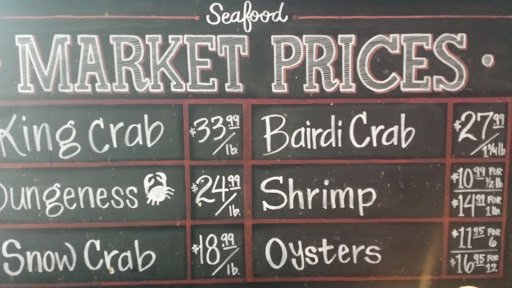 Seafood
MARKET PRICES
King Crab $33.99/lb. Bairdi Crab $27.99/1¼lb
Dungeness $24.99/lb. Shrimp $10.99 FOR ½lb
$14.99 FOR 1lb.
Snow Crab $18.99/lb. Oysters $11.95 FOR 6
$16.95 FOR 12